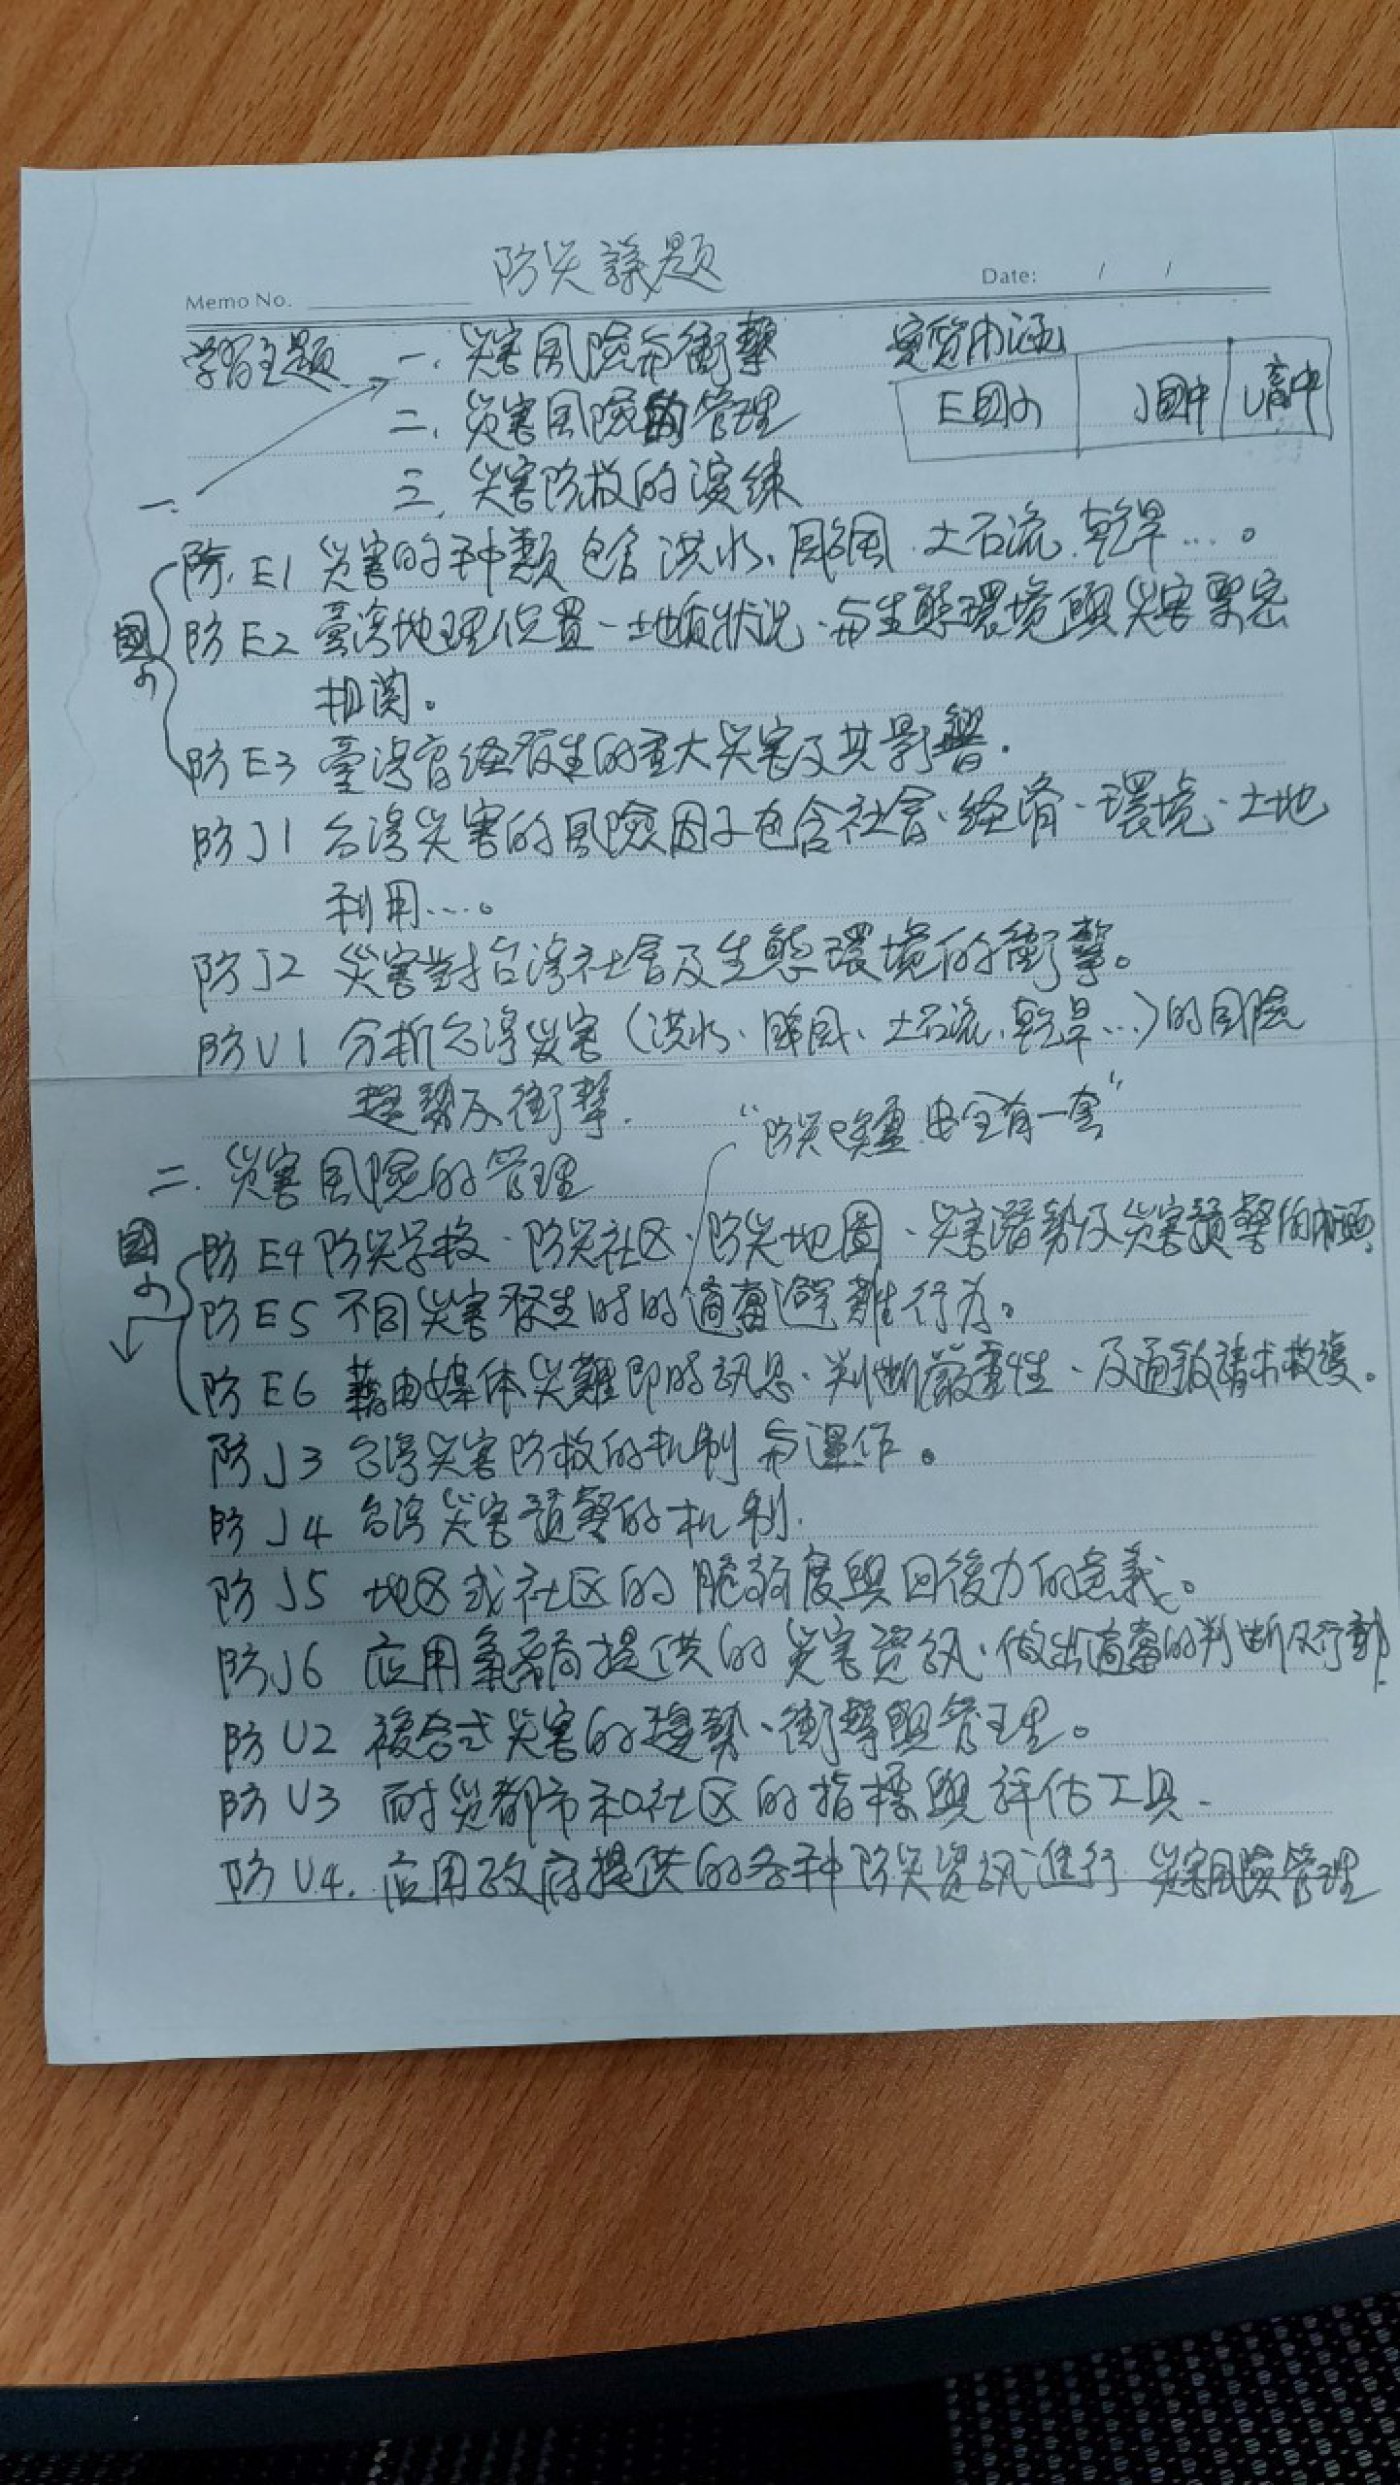 防災議題
Memo No.
Date: / /
学習主题 一. 災害風險与衝擊 實質内涵
二. 災害風險的管理 E國小 J國中 U高中
三. 災害防救的演練
一.
防 E1 災害的种類包含洪水、颱風、土石流、乾旱....。
國小 防 E2 臺湾地理位置、土地質狀況、与生態環境與災害緊密
相関。
防 E3 臺湾曾経發生的重大災害及其影響.
防 J1 台湾災害的風險因子包含社会、经濟、環境、土地
利用....。
防 J2 災害對台湾社会及生態環境的衝擊。
防 U1 分析台湾災害(洪水、颱風、土石流、乾旱...)的風險
趨勢及衝擊.
“防災 安全有一套”
二. 災害風險的管理
國小 防 E4 防災学校、防災社区、防災地圖、災害潛勢及災害預警的
防 E5 不同災害發生時的適當避難行为。
防 E6 藉由媒体災難即時訊息、判断嚴重性、及通報請求救護。
防 J3 台湾災害防救的机制与運作。
防 J4 台湾災害預警的机制.
防 J5 地区或社区的脆弱度與回復力的意義。
防 J6 应用氣象局提供的災害資訊、做出適當的判断及行動.
防 U2 複合式災害的趨勢、衝擊與管理。
防 U3 耐災都市和社区的指標與評估工具.
防 U4. 应用政府提供的各种防災資訊進行災害風險管理